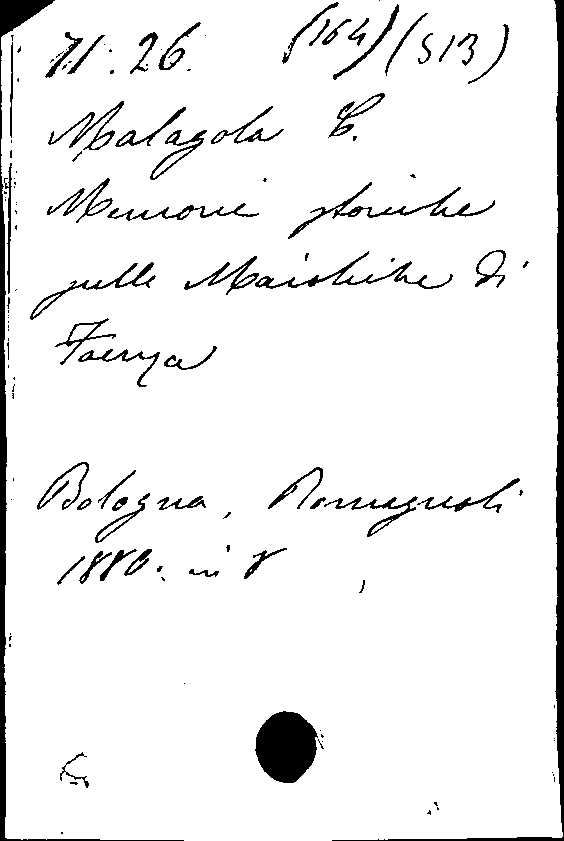 71.26. (164) (513)
Malagola C.
Memorie storiche
sulle Maioliche di
Faenza
Bologna, Romagnoli
1880. in 8